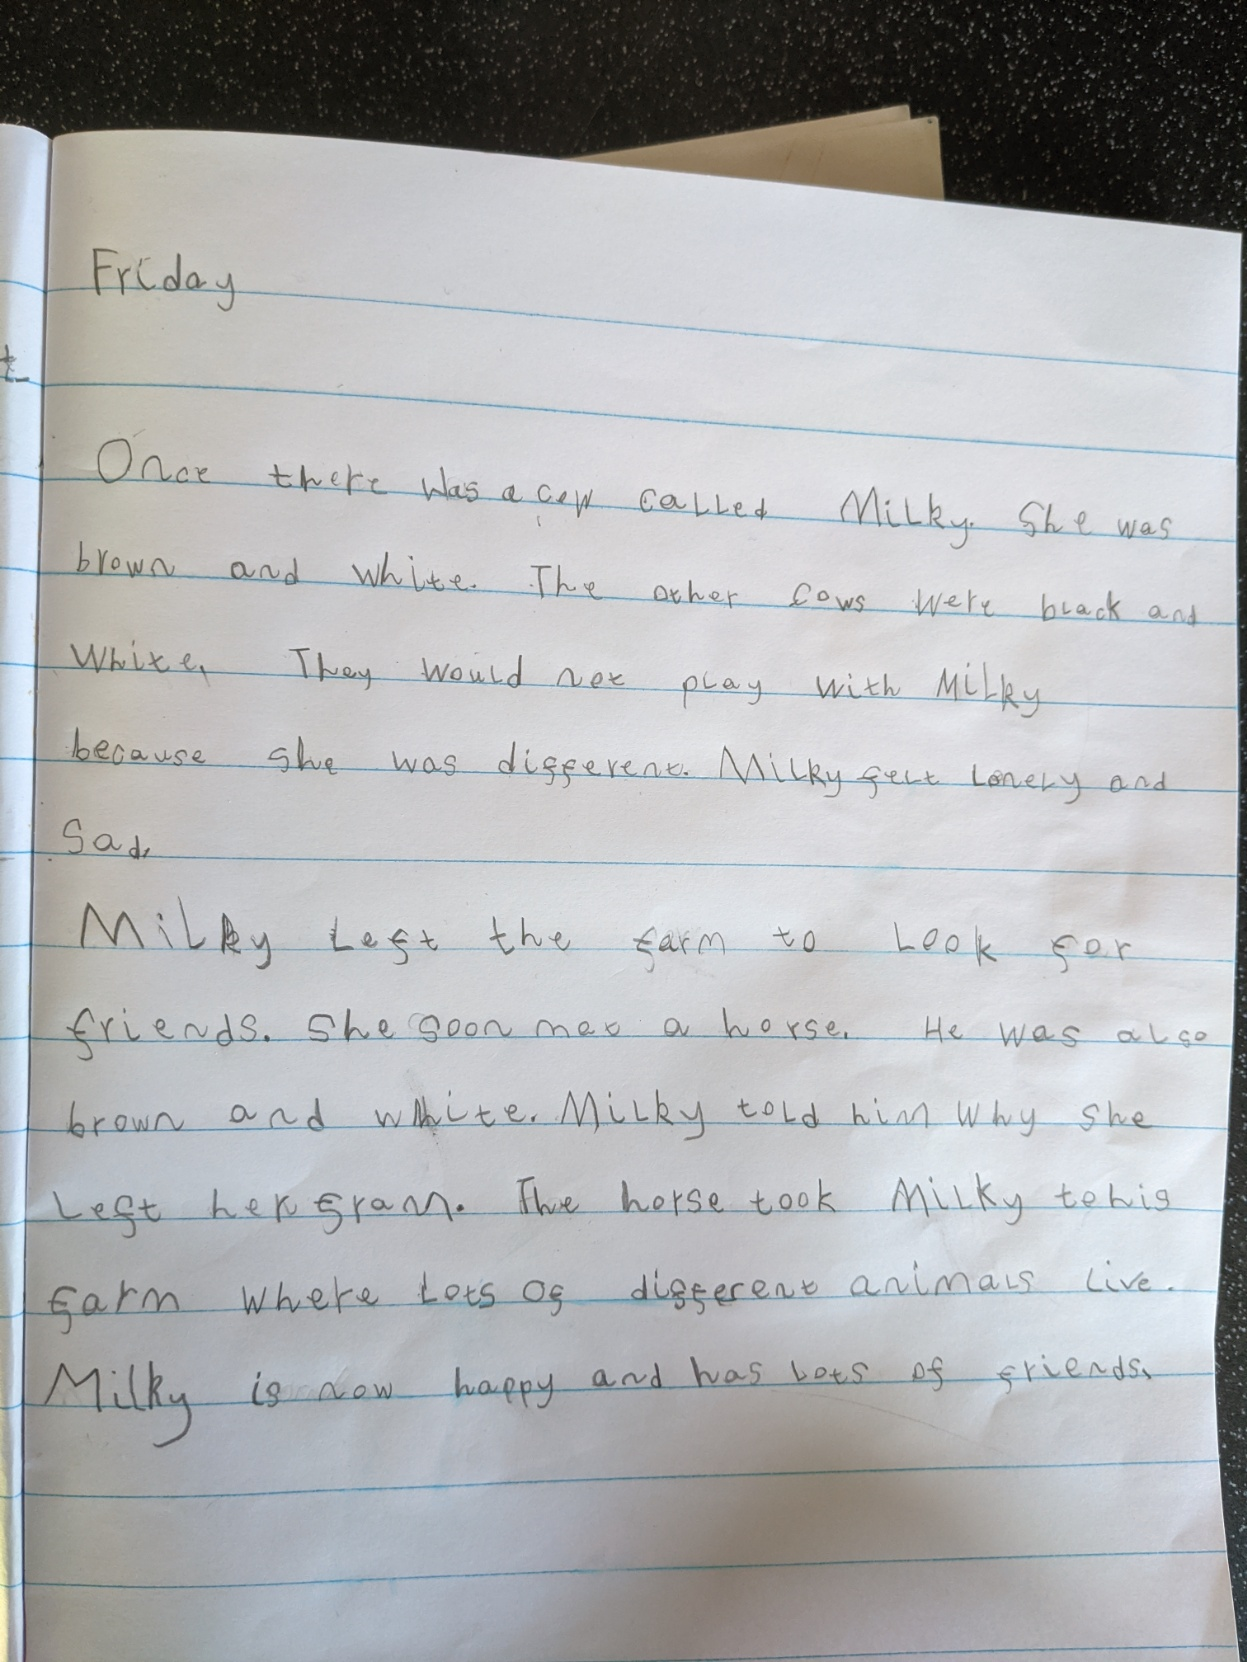 Friday
t
Once there was a cow called Milky. She was
brown and white. The other cows were black and
white. They would not play with Milky
because she was different. Milky felt lonely and
Sad.
Milky left the farm to look for
friends. She soon met a horse. He was also
brown and white. Milky told him why she
left her fram. The horse took Milky to his
farm where lots of different animals live.
Milky is now happy and has lots of friends.